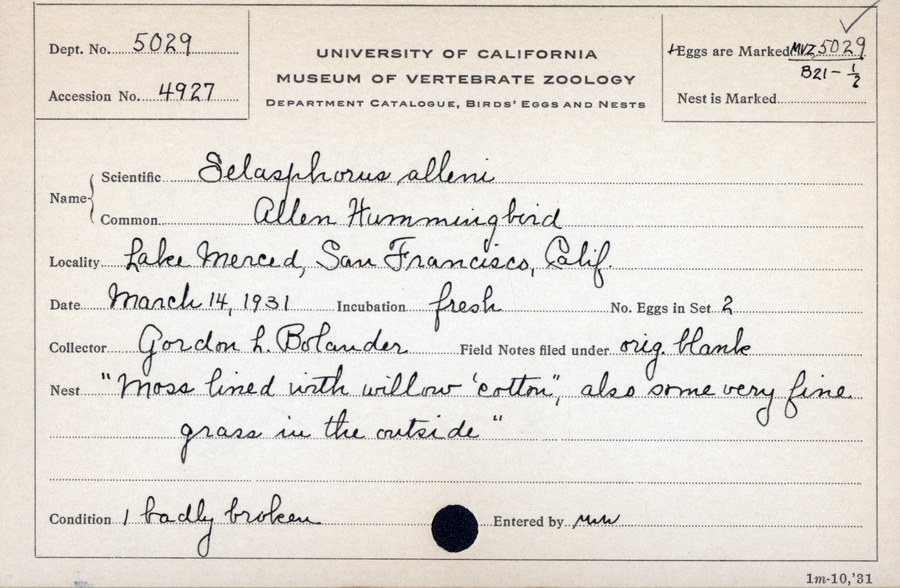 Dept. No. 5029
Accession No. 4927
UNIVERSITY OF CALIFORNIA
MUSEUM OF VERTEBRATE ZOOLOGY
DEPARTMENT CATALOGUE, BIRDS' EGGS AND NESTS
Eggs are Marked MVZ 5029
B21 - 1/2
Nest is Marked
Name
Scientific Selasphorus alleni
Common Allen Hummingbird
Locality Lake Merced, San Francisco, Calif.
Date March 14, 1931 Incubation fresh No. Eggs in Set 2
Collector Gordon L. Bolander Field Notes filed under orig. blank
Nest "Moss lined with willow 'cotton', also some very fine
grass in the outside"
Condition 1 badly broken Entered by
1m-10,'31